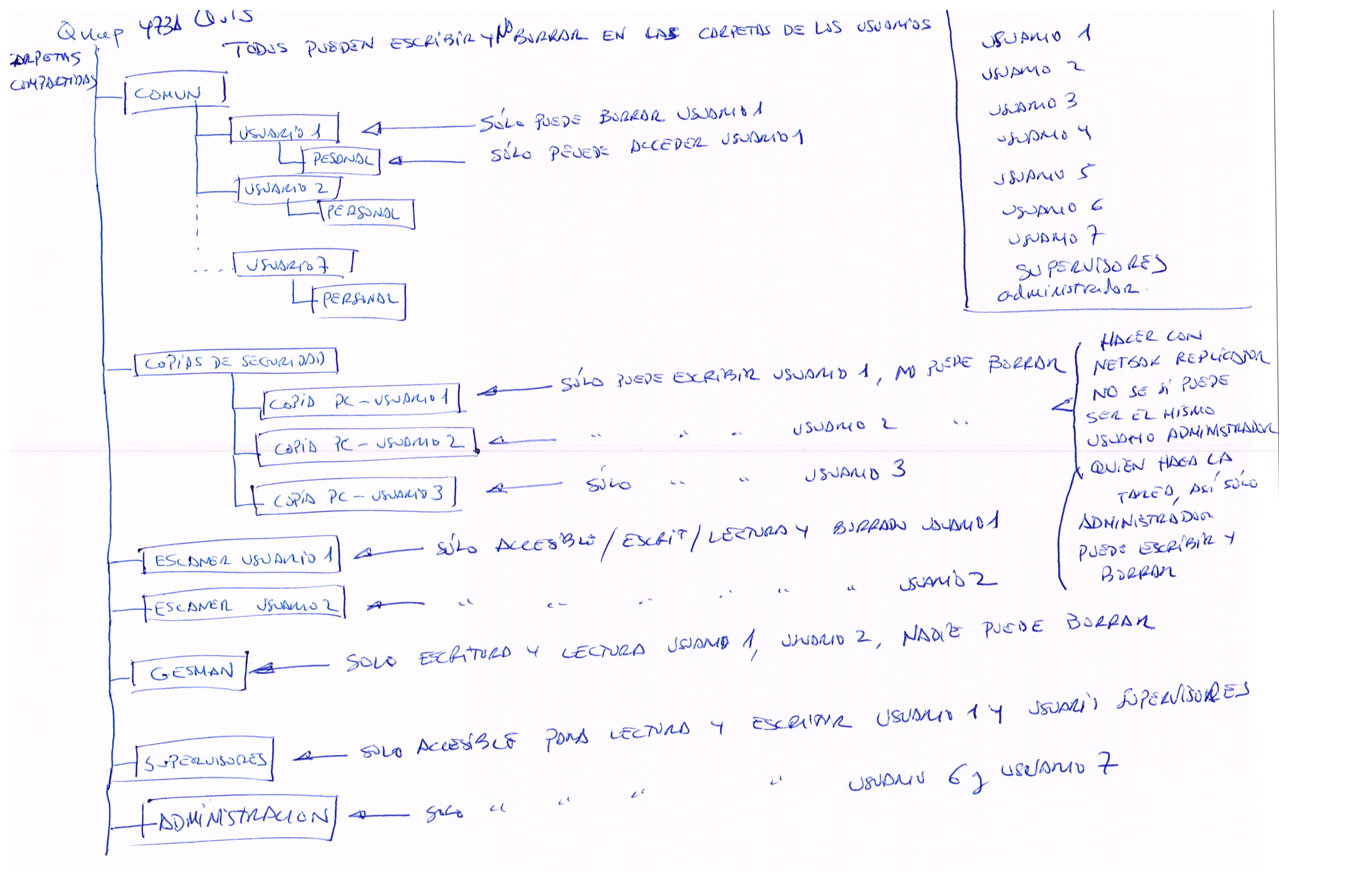 Qnap 473A Quis
CARPETAS COMPARTIDAS
TODOS PUEDEN ESCRIBIR Y NO BORRAR EN LAS CARPETAS DE LOS USUARIOS
COMUN
USUARIO 1
SÓLO PUEDE BORRAR USUARIO 1
PESONAL
SÓLO PEUEDE ACCEDER USUARIO 1
USUARIO 2
PERSONAL
USUARIO 7
PERSONAL
USUARIO 1
USUARIO 2
USUARIO 3
USUARIO 4
USUARIO 5
USUARIO 6
USUARIO 7
SUPERVISORES
administrador.
COPIAS DE SEGURIDAD
COPIA PC - USUARIO 1
SÓLO PUEDE EXCRIBIR USUARIO 1, NO PUEDE BORRAR
COPIA PC - USUARIO 2
" " " USUARIO 2 "
COPIA PC - USUARIO 3
SÓLO " " USUARIO 3
HACER CON
NETBAK REPLICADOR
NO SE SI PUEDE
SER EL MISMO
USUARIO ADMINISTRADOR
QUIEN HAGA LA
TAREA, ASÍ SÓLO
ADMINISTRADOR
PUEDE ESCRIBIR Y
BORRAR
ESCANER USUARIO 1
SÓLO ACCESIBLE/ESCRIT/LECTURA Y BORRADO USUARIO 1
ESCANER USUARIO 2
" " " " " " USUARIO 2
GESMAN
SOLO ESCRITURA Y LECTURA USUARIO 1, USUARIO 2, NADIE PUEDE BORRAR
SUPERVISORES
SOLO ACCESIBLE PARA LECTURA Y ESCRIBIR USUARIO 1 Y USUARIO SUPERVISORES
ADMINISTRACION
SOLO " " " " USUARIO 6 y USUARIO 7